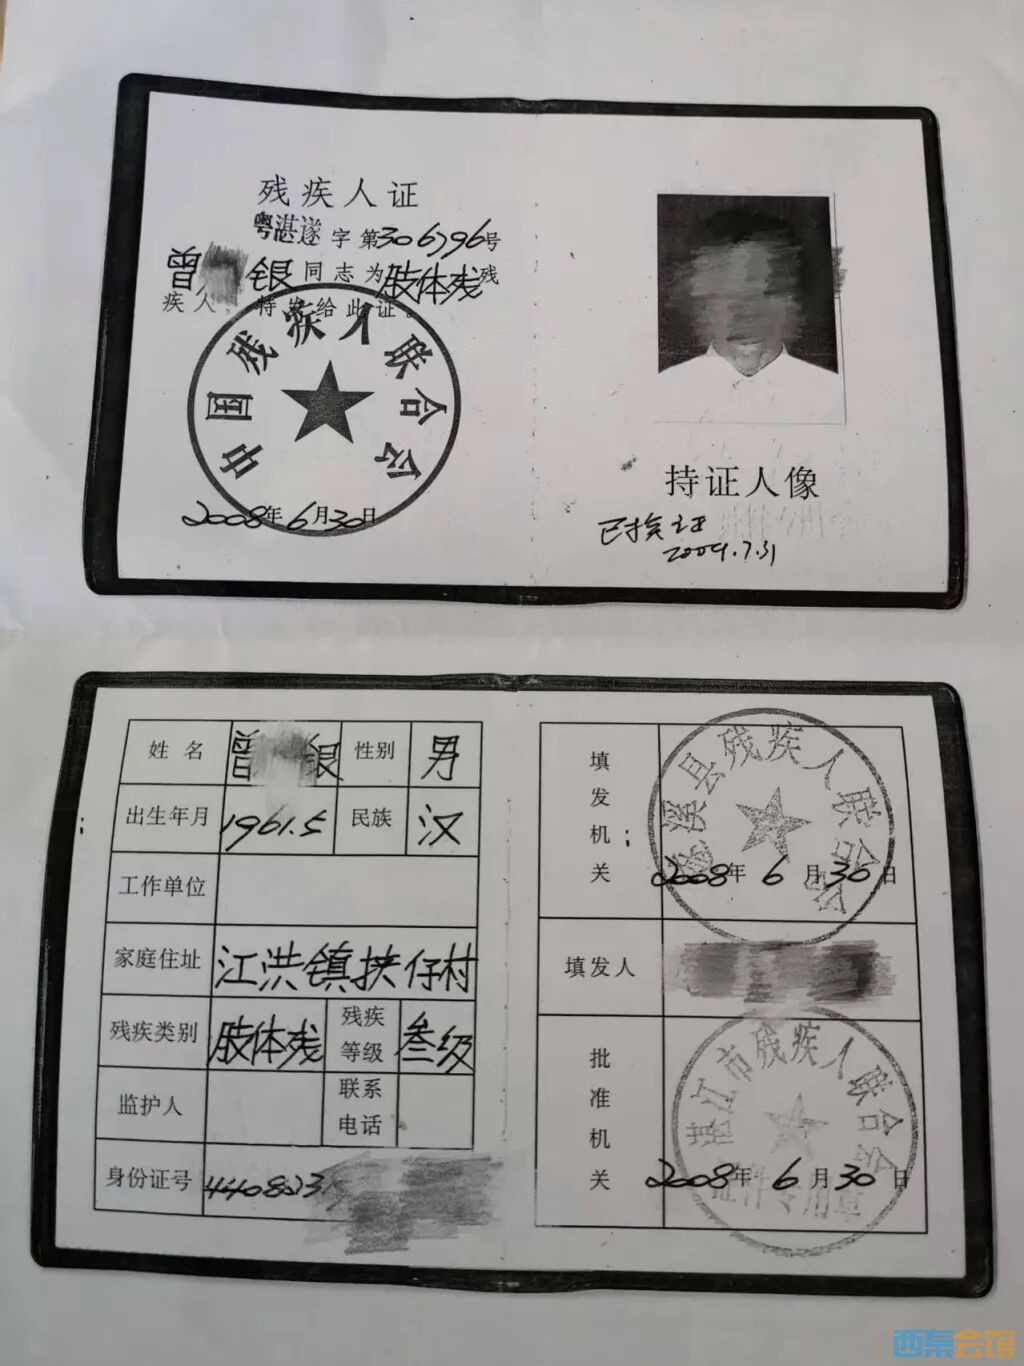 残疾人证
粤湛遂字第306796号
曾 银同志为肢体残残
疾人,特发给此证。
中国残疾人联合会
2008年6月30日
持证人像
已换证
2009.7.31
姓名 曾 银 性别 男
出生年月 1961.5 民族 汉
工作单位
家庭住址 江洪镇扶仔村
残疾类别 肢体残 残疾等级 叁级
监护人 联系电话
身份证号 440823
填发机关
遂溪县残疾人联合会
2008年6月30日
填发人
批准机关
湛江市残疾人联合会
证件专用章
2008年6月30日
西秦会馆